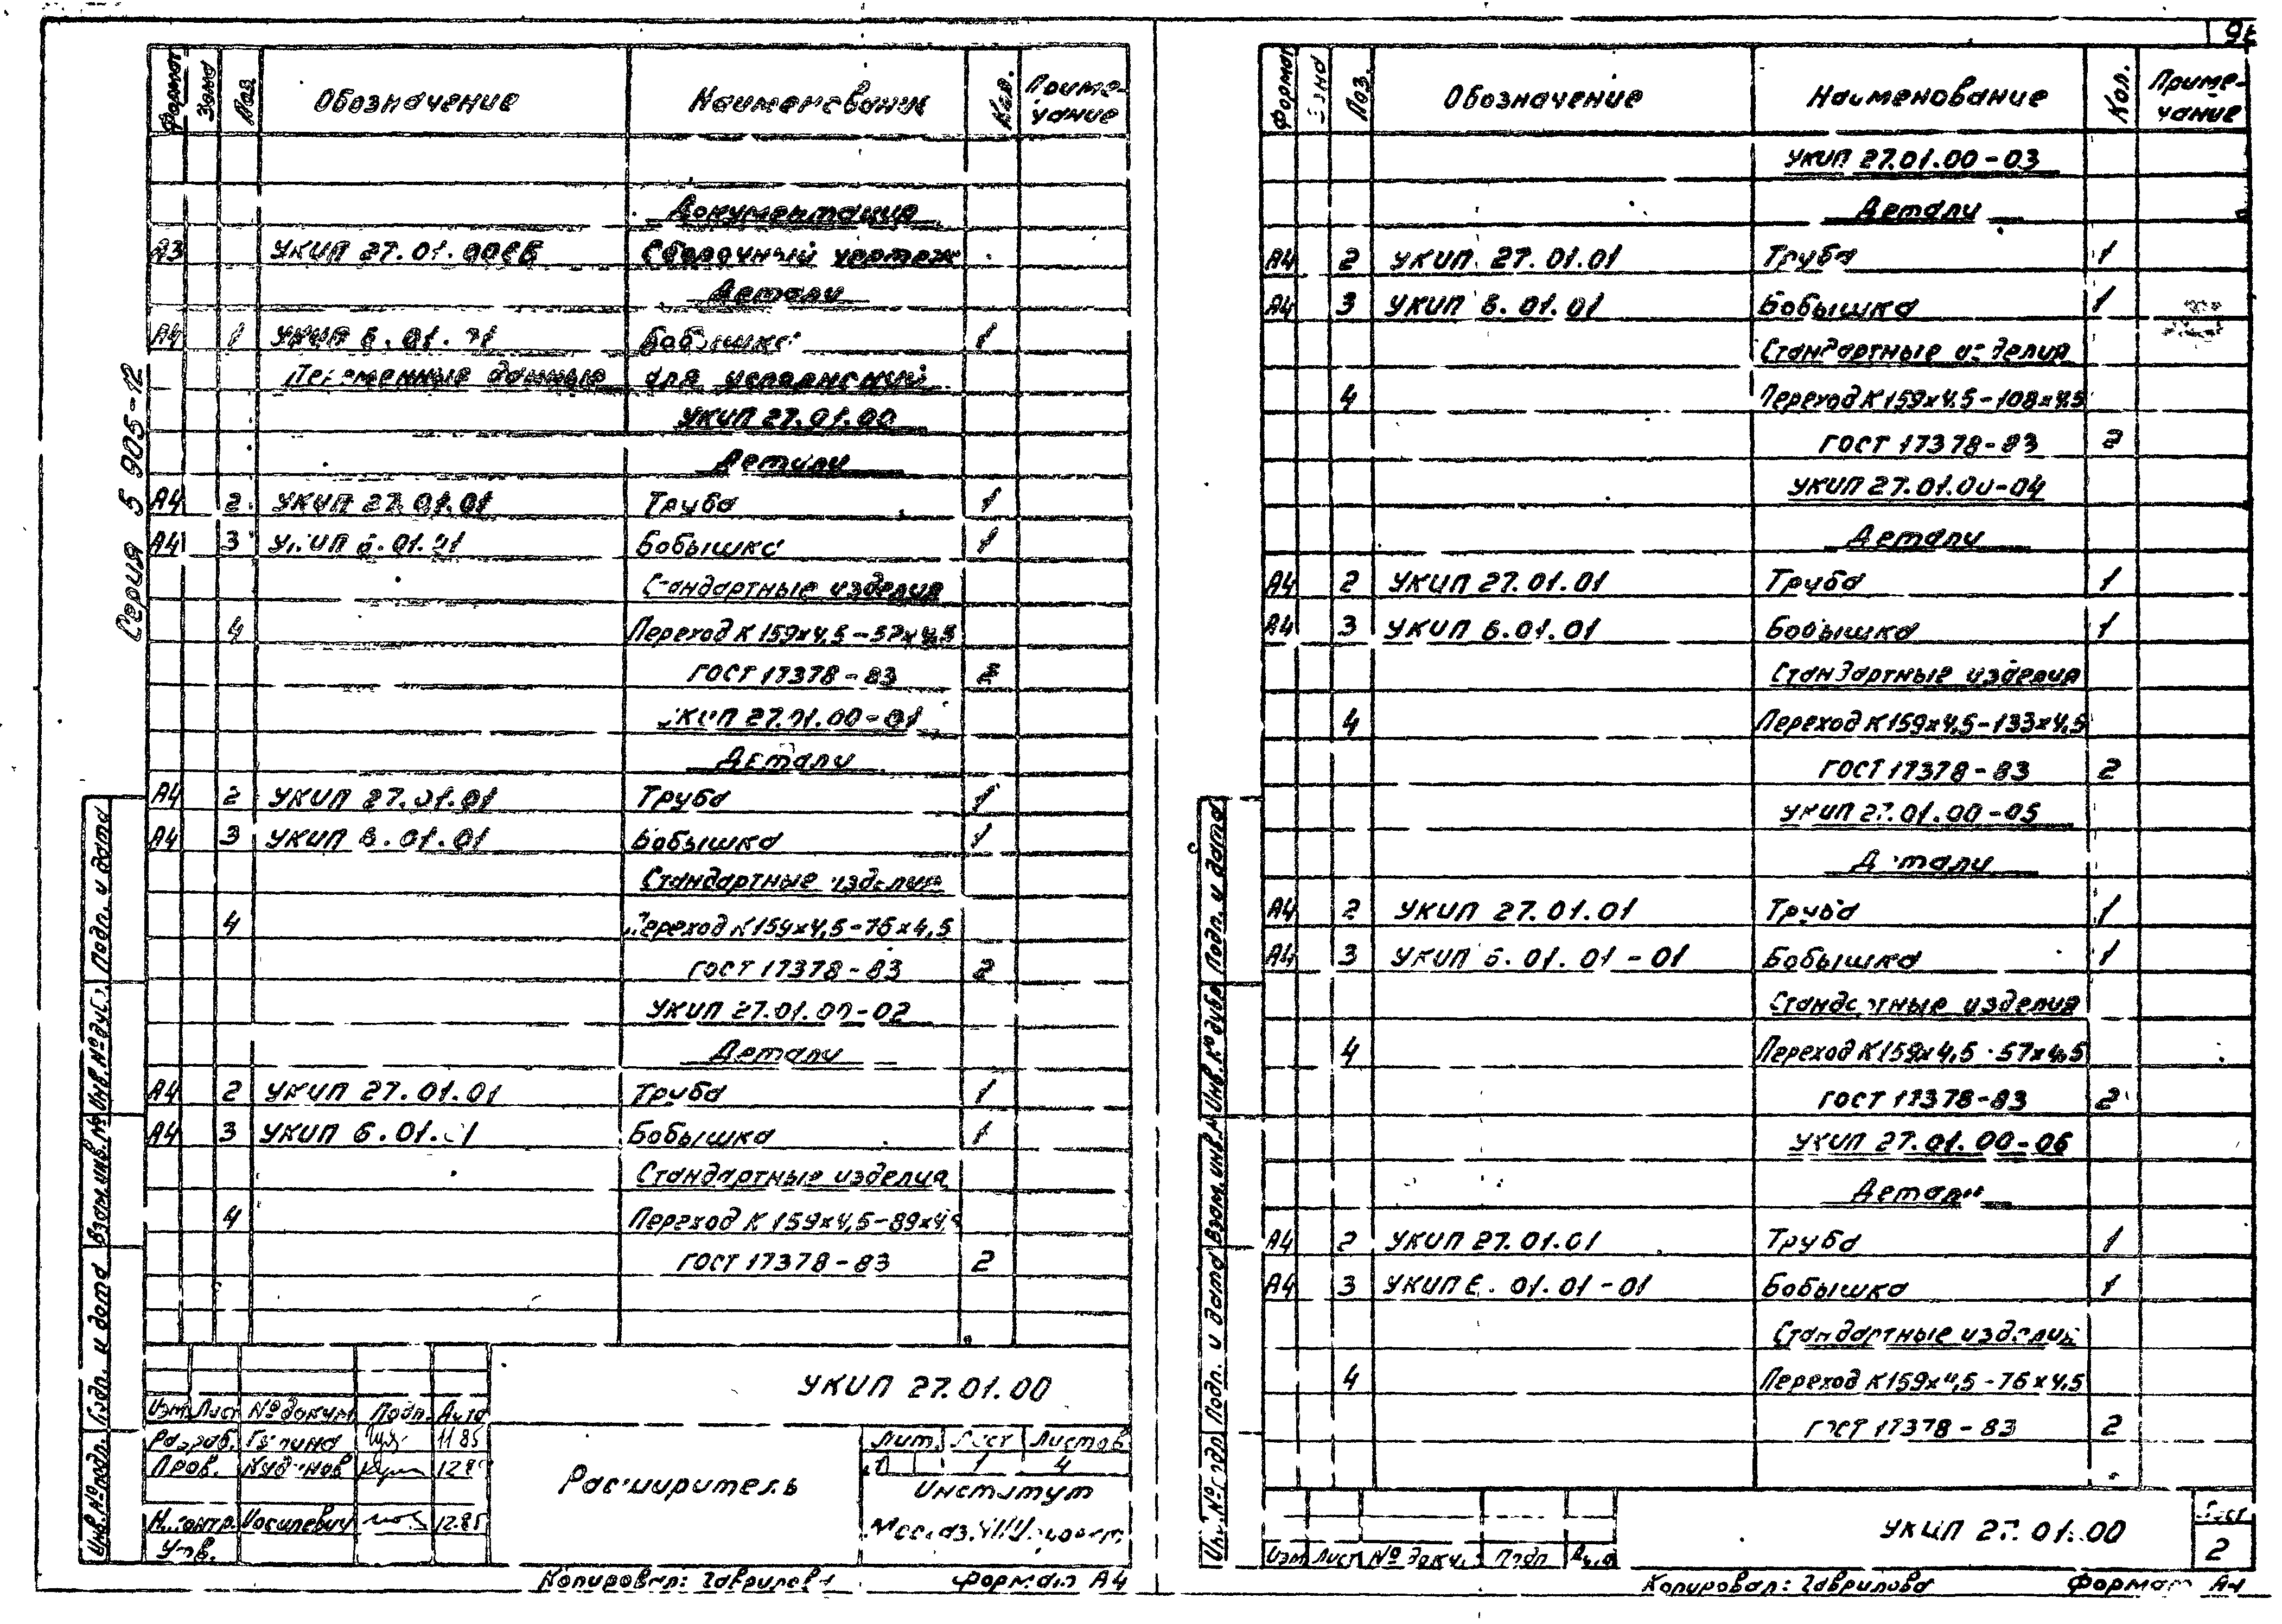 Серия 5 905-12
Формат Зона Поз. Обозначение Наименование Кол. Примечание
Документация
А3 УКИП 27.01.00СБ Сборочный чертеж
Детали
А4 1 УКИП 6.01.01 Бобышка 1
Переменные данные для исполнений
УКИП 27.01.00
Детали
А4 2 УКИП 27.01.01 Труба 1
А4 3 УКИП 6.01.01 Бобышка 1
Стандартные изделия
4 Переход К 159х4,5-57х4,5
ГОСТ 17378-83 2
УКИП 27.01.00-01
Детали
А4 2 УКИП 27.01.01 Труба 1
А4 3 УКИП 6.01.01 Бобышка 1
Стандартные изделия
4 Переход К159х4,5-76х4,5
ГОСТ 17378-83 2
УКИП 27.01.00-02
Детали
А4 2 УКИП 27.01.01 Труба 1
А4 3 УКИП 6.01.01 Бобышка 1
Стандартные изделия
4 Переход К 159х4,5-89х4,5
ГОСТ 17378-83 2
УКИП 27.01.00
Изм. Лист № докум. Подп. Дата
Разраб. 11.85
Пров. 12.85
Н.контр. Иосилевич 12.85
Утв.
Расширитель
Лит. Лист Листов
1 4
Институт
Копировал: Гаврилова Формат А4
Инв. № подл. Подп. и дата Взам. инв. № Инв. № дубл. Подп. и дата
Формат Зона Поз. Обозначение Наименование Кол. Примечание
УКИП 27.01.00-03
Детали
А4 2 УКИП 27.01.01 Труба 1
А4 3 УКИП 6.01.01 Бобышка 1
Стандартные изделия
4 Переход К159х4,5-108х4,5
ГОСТ 17378-83 2
УКИП 27.01.00-04
Детали
А4 2 УКИП 27.01.01 Труба 1
А4 3 УКИП 6.01.01 Бобышка 1
Стандартные изделия
4 Переход К159х4,5-133х4,5
ГОСТ 17378-83 2
УКИП 27.01.00-05
Детали
А4 2 УКИП 27.01.01 Труба 1
А4 3 УКИП 6.01.01-01 Бобышка 1
Стандартные изделия
4 Переход К159х4,5-57х4,5
ГОСТ 17378-83 2
УКИП 27.01.00-06
Детали
А4 2 УКИП 27.01.01 Труба 1
А4 3 УКИП 6.01.01-01 Бобышка 1
Стандартные изделия
4 Переход К159х4,5-76х4,5
ГОСТ 17378-83 2
УКИП 27.01.00
Лист
2
Изм. Лист № докум. Подп. Дата
Копировал: Гаврилова Формат А4
Инв. № подл. Подп. и дата Взам. инв. № Инв. № дубл. Подп. и дата